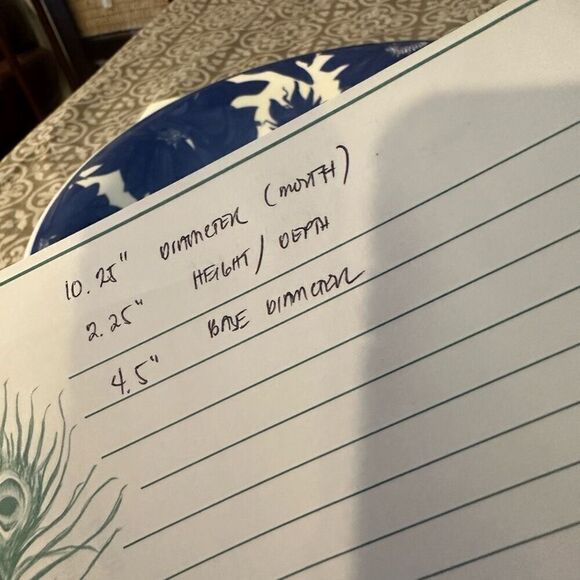 10.25" DIAMETER (MOUTH)
2.25" HEIGHT/DEPTH
4.5" BASE DIAMETER